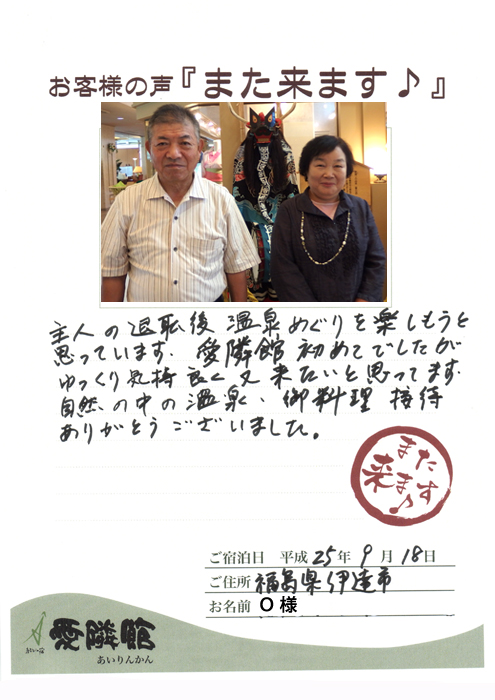 お客様の声『また来ます♪』
主人の退職後 温泉めぐりを楽しもうと
思っています。愛隣館 初めてでしたが
ゆっくり気持良く又来たいと思ってます。
自然の中の温泉、御料理 接待
ありがとうございました。
また
来ます♪
ご宿泊日 平成25年9月18日
ご住所 福島県伊達市
お名前 O様
愛隣館
あいりんかん